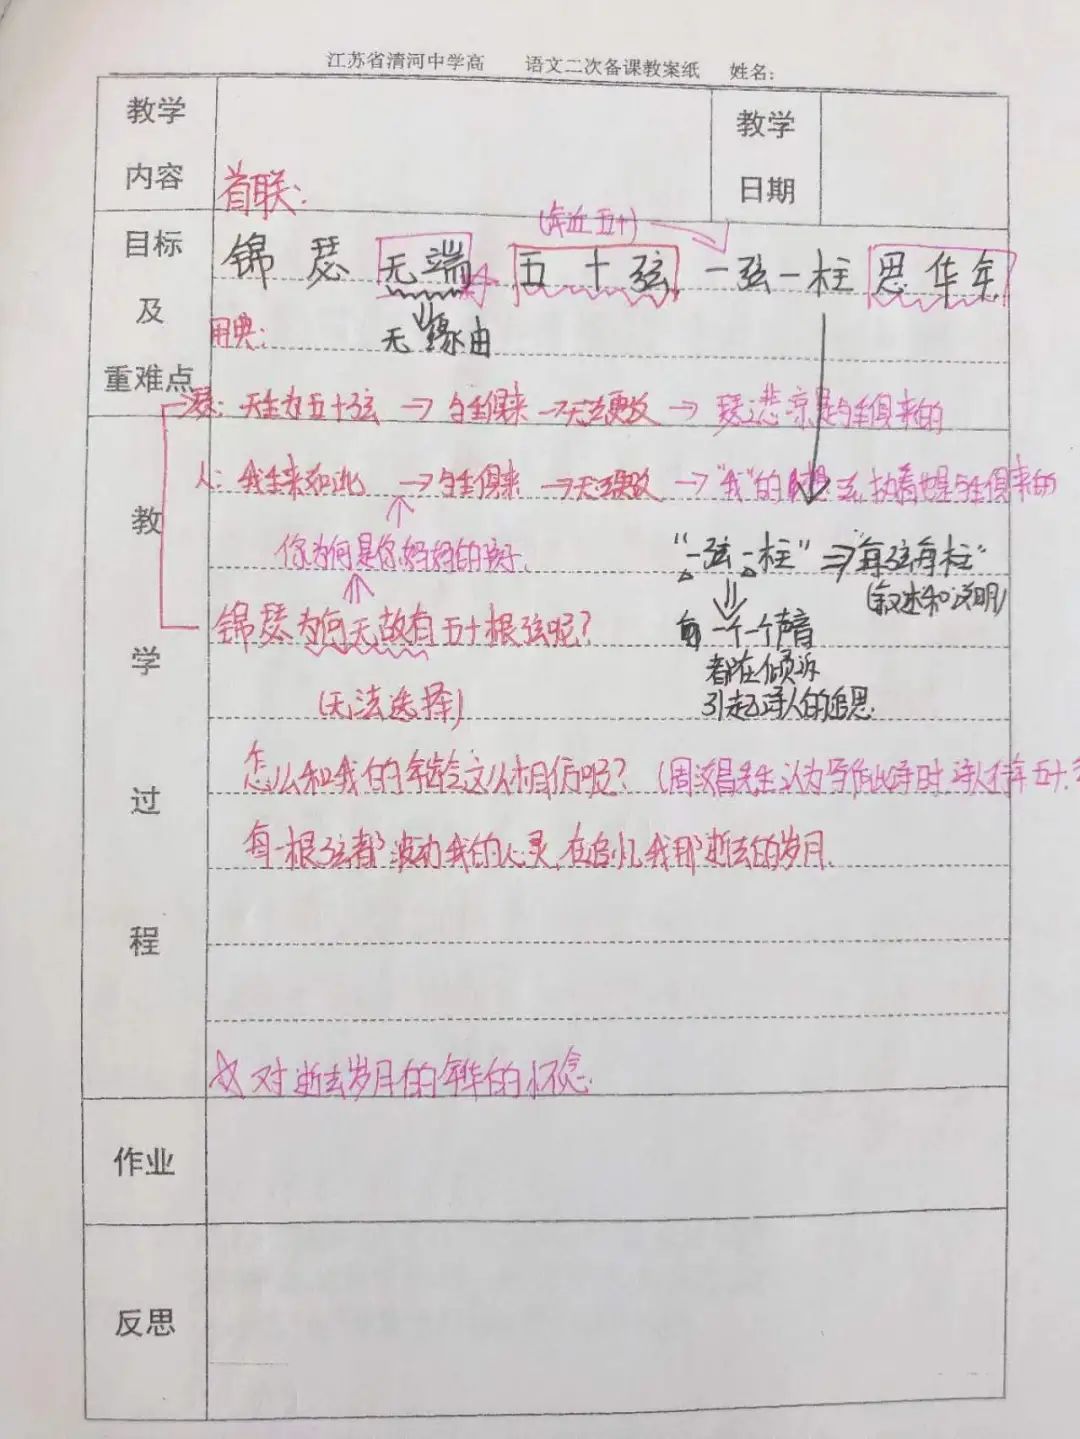 江苏省清河中学高 语文二次备课教案纸 姓名:
教学内容
教学日期
首联:
目标及重难点
(年近五十)
锦瑟无端五十弦 一弦一柱思华年
用典: 无缘由
瑟: 天生为五十弦 → 与生俱来 → 无法更改 → 瑟之悲凉是与生俱来的
人: 我生来如此 → 与生俱来 → 无法更改 → "我"的 执着也是与生俱来的
教学过程
你为何是你妈妈的孩子
"一弦一柱" ⇒ "每弦每柱"
(叙述和说明)
锦瑟为何无故有五十根弦呢?
一个一个声音
都在倾诉
(无法选择)
引起诗人的追思
怎么和我的年龄这么相仿呢? (周汝昌先生认为写作此诗时 诗人年五十
每一根弦都 波动我的心灵 在追忆我那逝去的岁月.
☆ 对逝去岁月的年华的怀念.
作业
反思